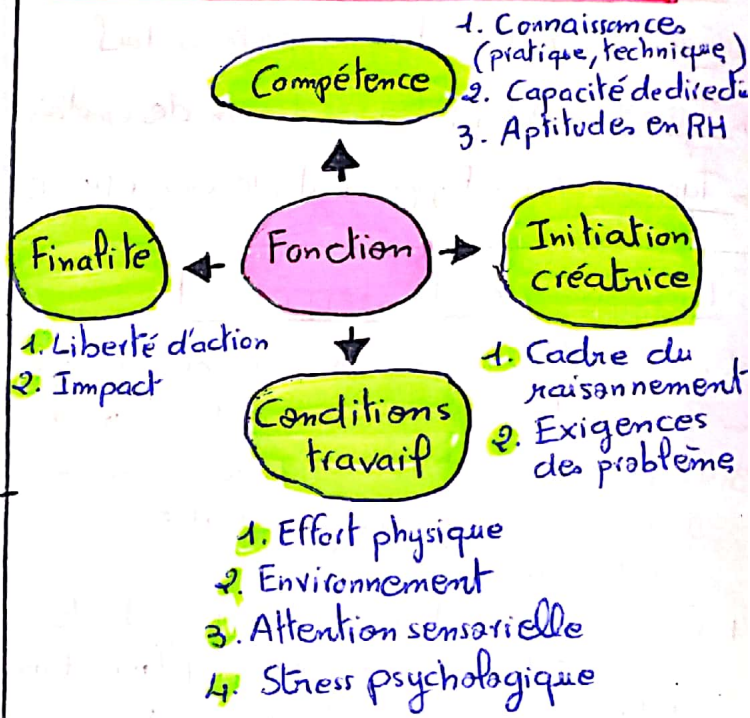 Compétence
1. Connaissances
(pratique, technique)
2. Capacité de directi
3. Aptitudes en RH
Finalité
Fonction
Initiation
créatrice
1. Liberté d'action
2. Impact
1. Cadre du
raisonnement
2. Exigences
des problème
Conditions
travail
1. Effort physique
2. Environnement
3. Attention sensorielle
4. Stress psychologique